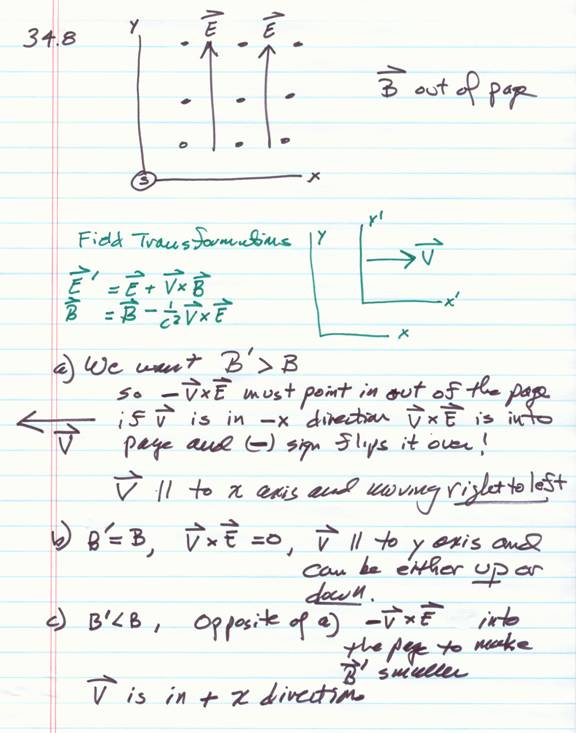 34.8
Y E⃗ E⃗
B⃗ out of page
S x
Field Transformations
E⃗' = E⃗ + V⃗ x B⃗
B⃗ = B⃗ - 1/c² V⃗ x E⃗
Y x' V⃗
x'
x
a) We want B' > B
so - V⃗ x E⃗ must point in out of the page
if V⃗ is in -x direction V⃗ x E⃗ is into
V⃗ page and (-) sign flips it over!
V⃗ || to x axis and moving right to left
b) B' = B, V⃗ x E⃗ = 0, V⃗ || to y axis and
can be either up or
down.
c) B' < B, opposite of a) - V⃗ x E⃗ into
the page to make
B⃗' smaller
V⃗ is in + x direction